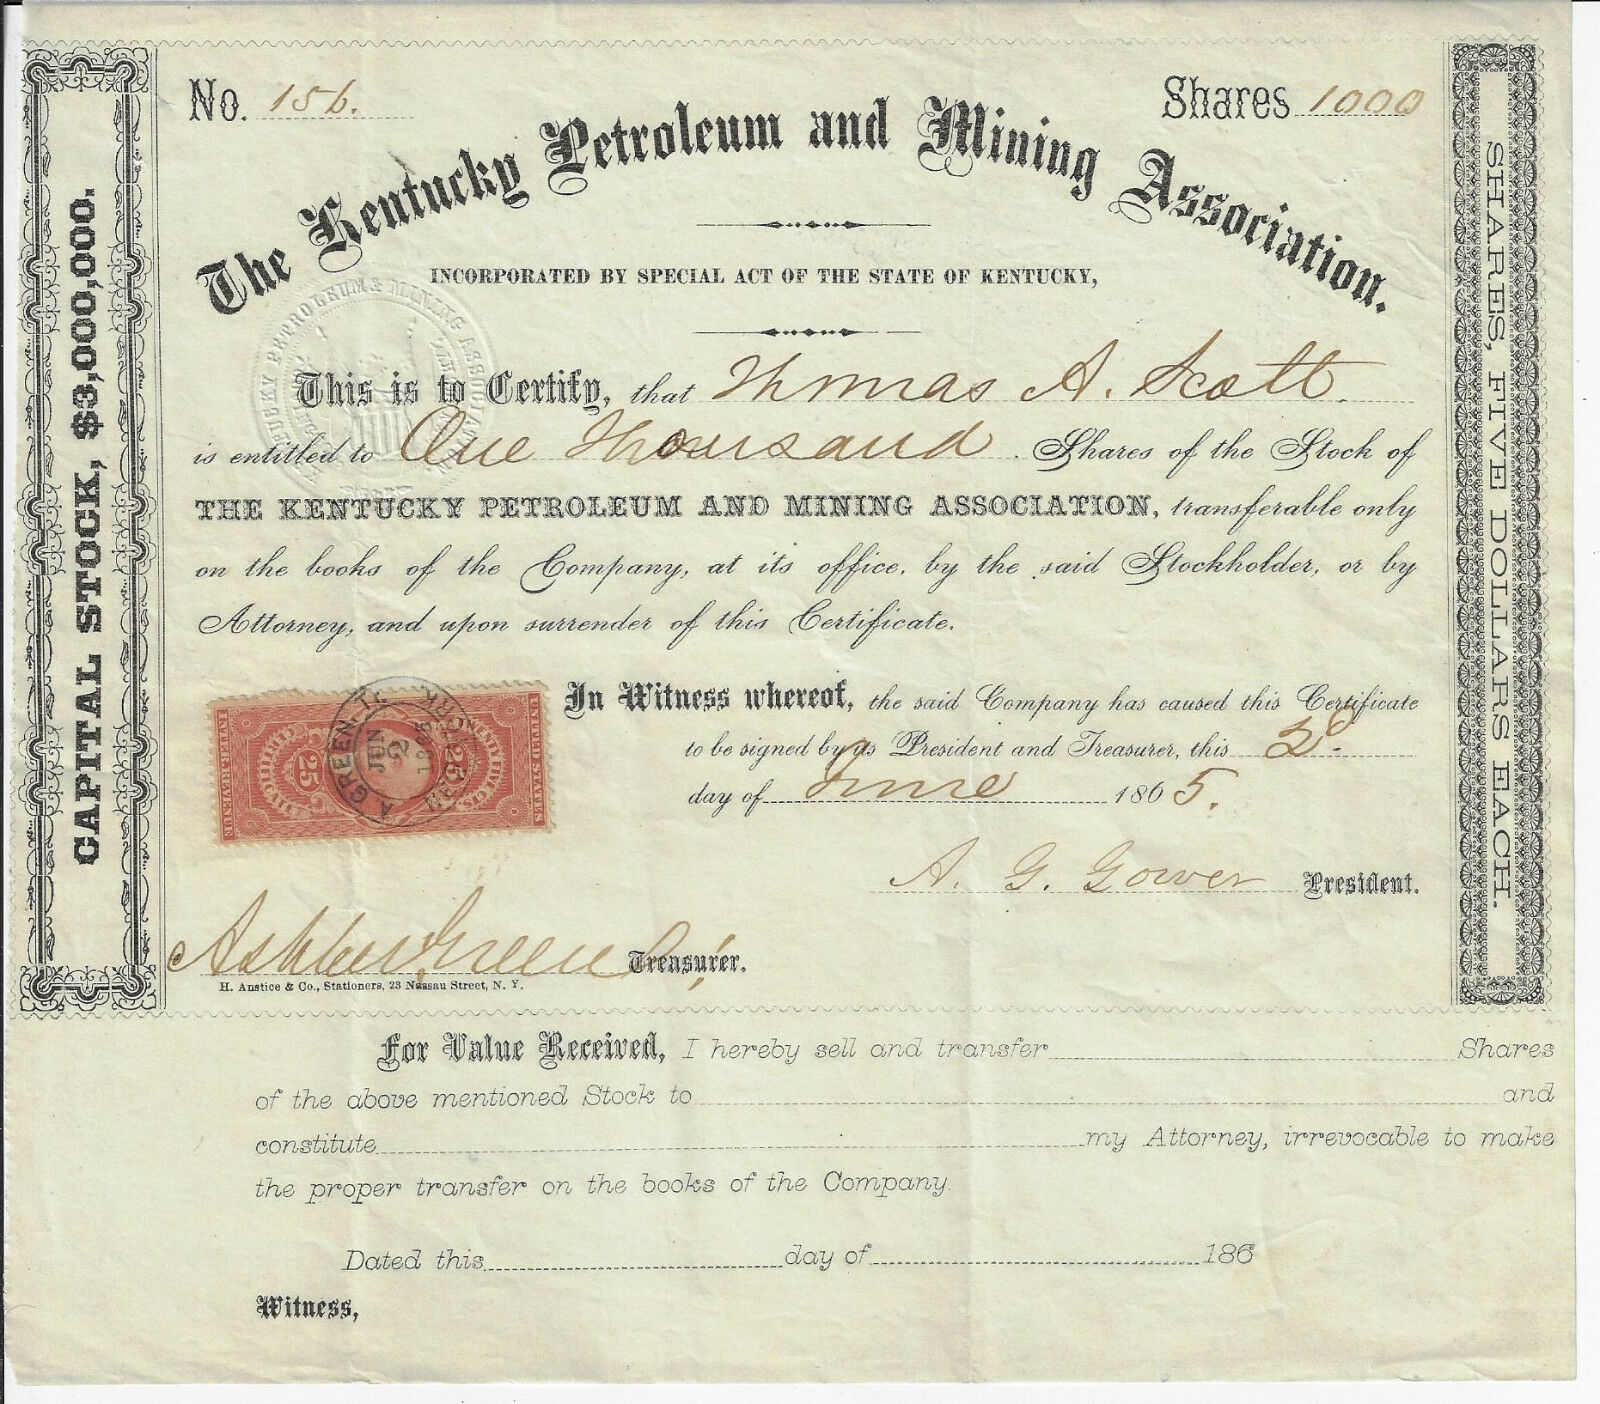 No. 156.
Shares 1000
The Kentucky Petroleum and Mining Association.
INCORPORATED BY SPECIAL ACT OF THE STATE OF KENTUCKY,
CAPITAL STOCK, $3,000,000.
SHARES, FIVE DOLLARS EACH.
KENTUCKY PETROLEUM & MINING ASSOCIATION
This is to Certify, that Thomas A. Scott.
is entitled to One Thousand Shares of the Stock of
THE KENTUCKY PETROLEUM AND MINING ASSOCIATION, transferable only
on the books of the Company, at its office, by the said Stockholder, or by
Attorney, and upon surrender of this Certificate.
In Witness whereof, the said Company has caused this Certificate
to be signed by its President and Treasurer, this 2d.
day of June 1865.
INTER. REVENUE
UNITED STATES
25
25
A GREEN TR
JUN
2
1865
NEW YORK
A. G. Gower President.
Ashbel Green Treasurer.
H. Anstice & Co., Stationers, 23 Nassau Street, N. Y.
For Value Received, I hereby sell and transfer Shares
of the above mentioned Stock to and
constitute my Attorney, irrevocable to make
the proper transfer on the books of the Company.
Dated this day of 186
Witness,